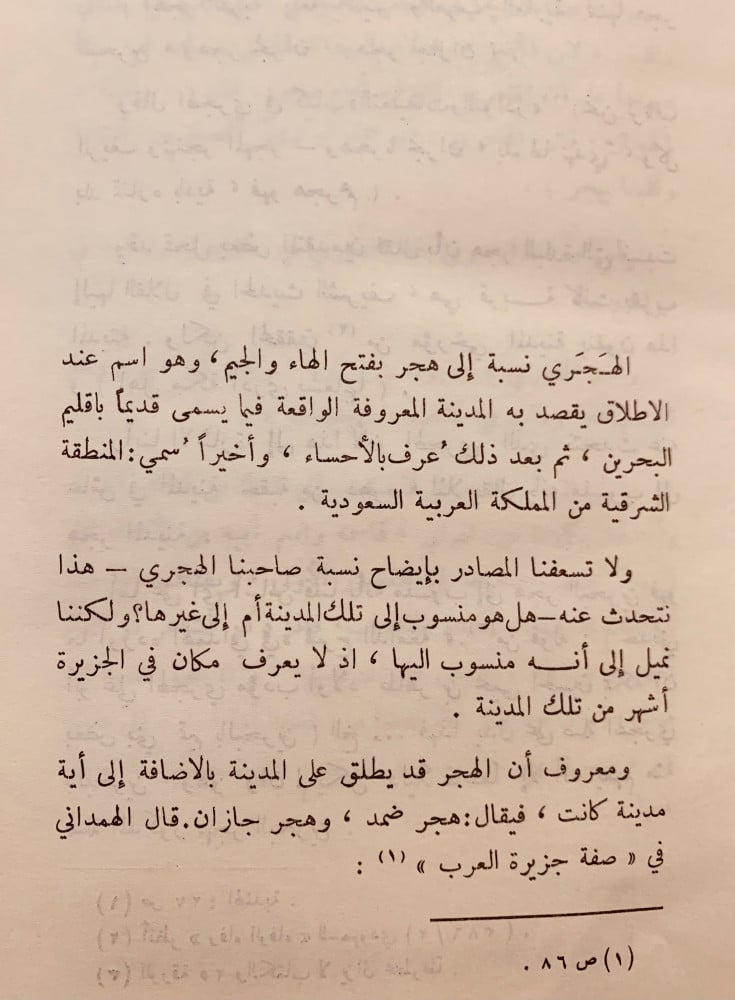 الهَجَري نسبة إلى هجر بفتح الهاء والجيم ، وهو اسم عند
الاطلاق يقصد به المدينة المعروفة الواقعة فيما يسمى قديماً باقليم
البحرين ، ثم بعد ذلك ُعرف بالأحساء ، وأخيراً ُسمي : المنطقة
الشرقية من المملكة العربية السعودية .
ولا تسعفنا المصادر بإيضاح نسبة صاحبنا الهجري – هذا
نتحدث عنه – هل هو منسوب إلى تلك المدينة أم إلى غيرها ؟ ولكننا
نميل إلى أنـــه منسوب اليها ، اذ لا يعرف مكان في الجزيرة
أشهر من تلك المدينة .
ومعروف أن الهجر قد يطلق على المدينة بالاضافة إلى أية
مدينة كانت ، فيقال : هجر ضمد ، وهجر جازان . قال الهمداني
في « صفة جزيرة العرب » (١) :
(١) ص ٨٦ .